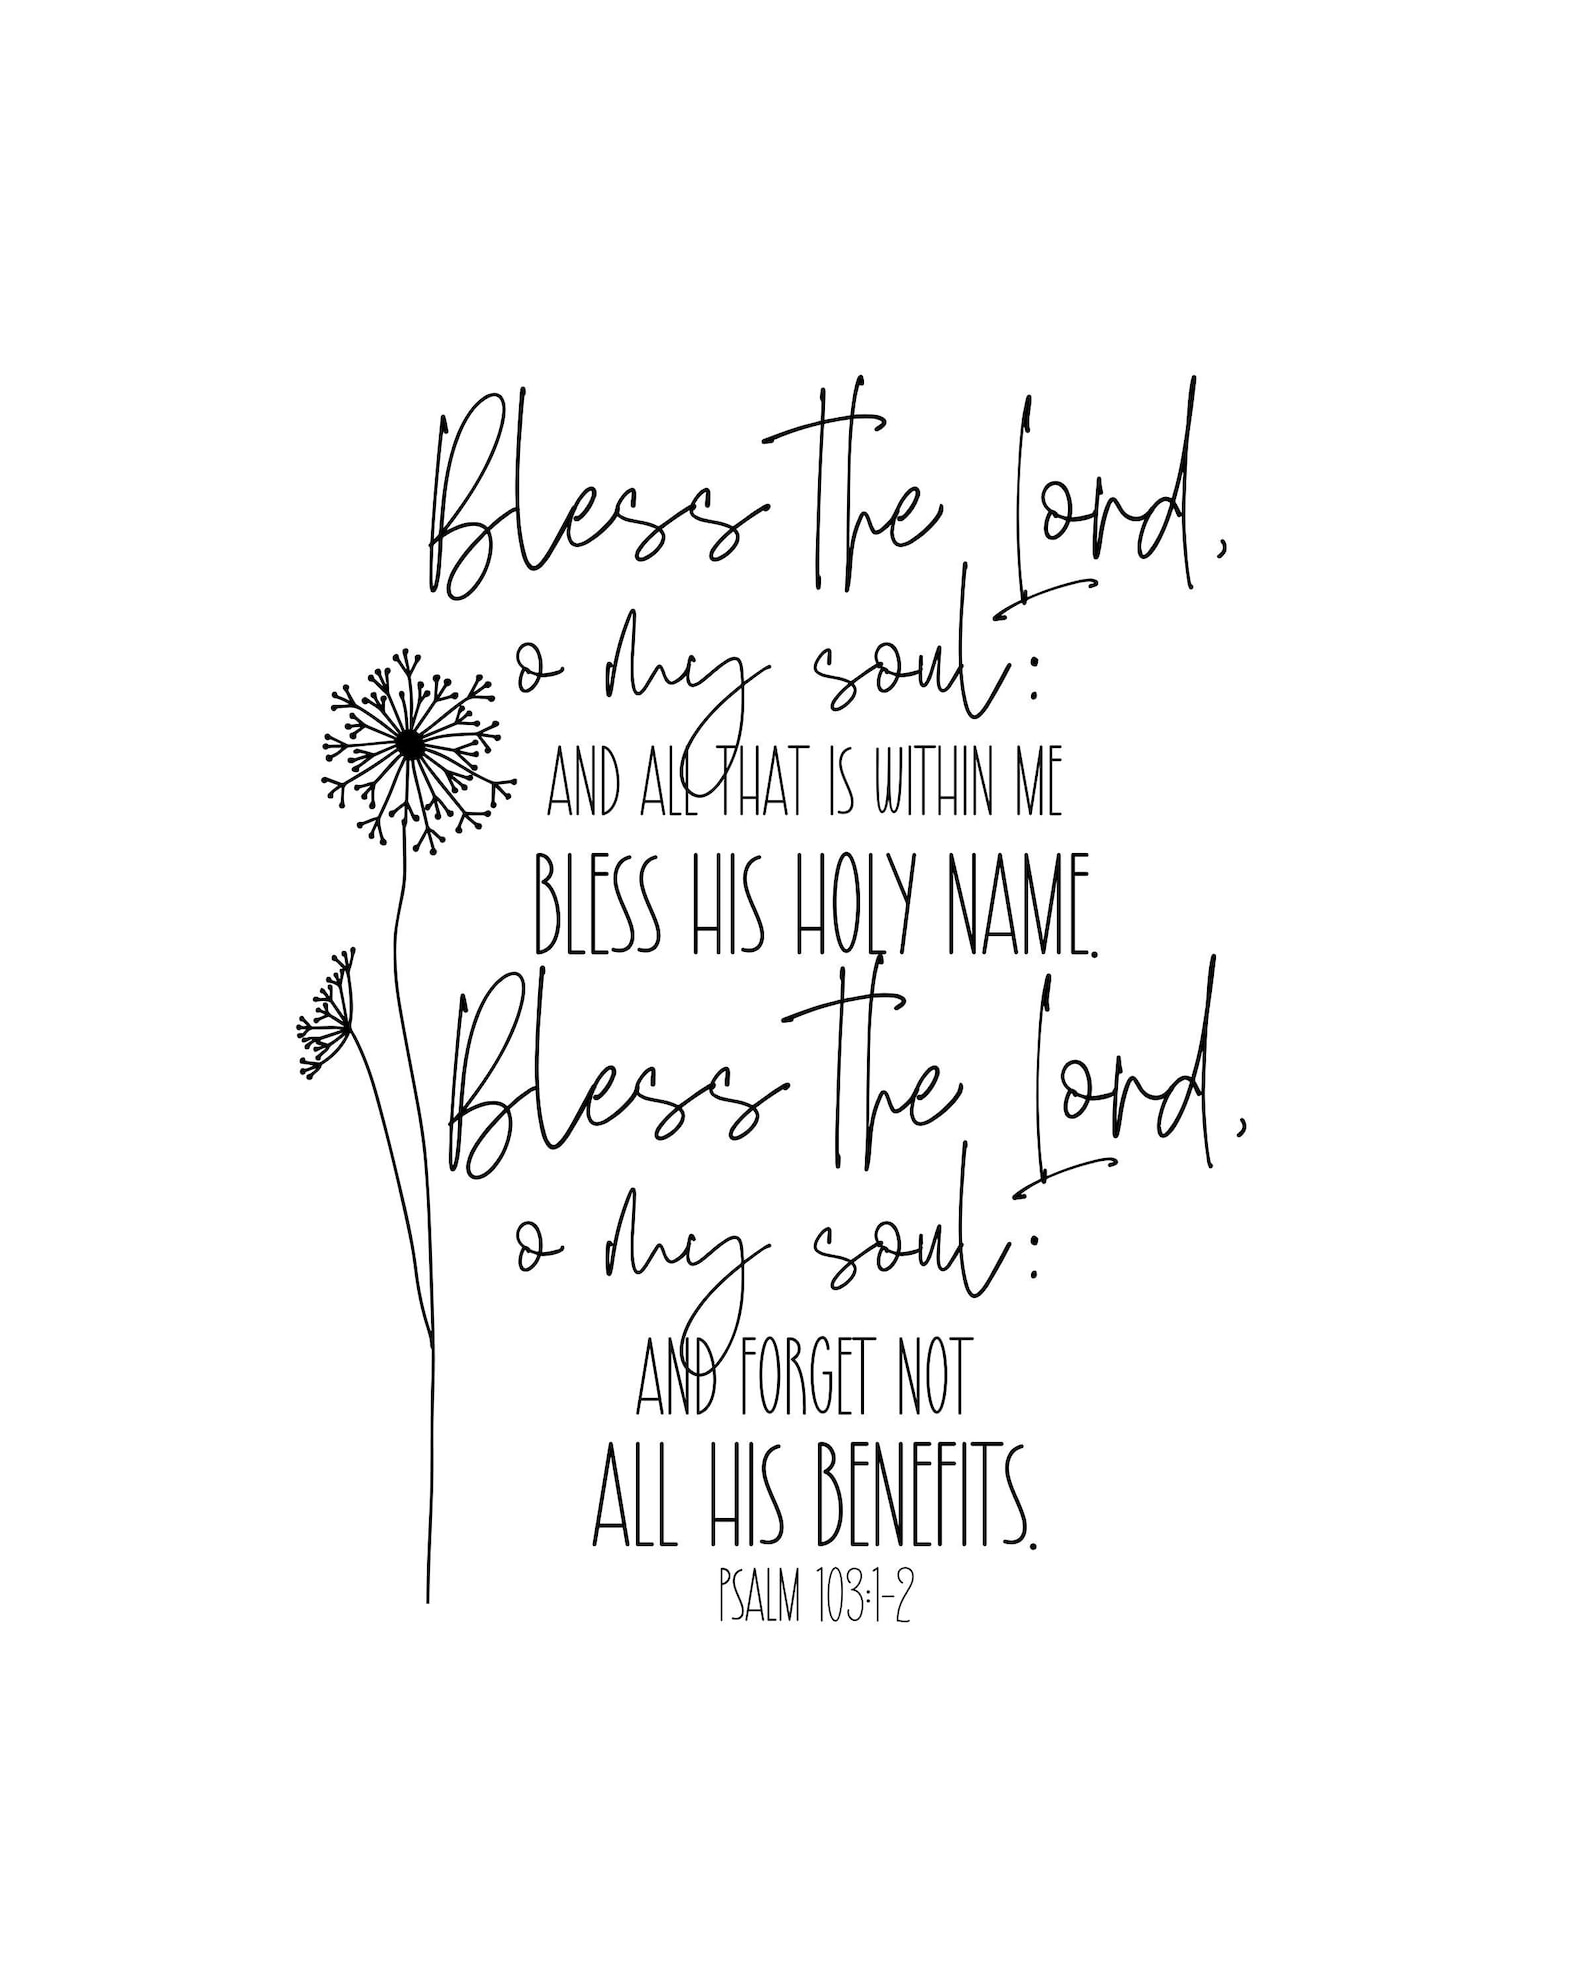 Bless the Lord,
o my soul:
AND ALL THAT IS WITHIN ME
BLESS HIS HOLY NAME.
Bless the Lord,
o my soul:
AND FORGET NOT
ALL HIS BENEFITS.
PSALM 103:1-2